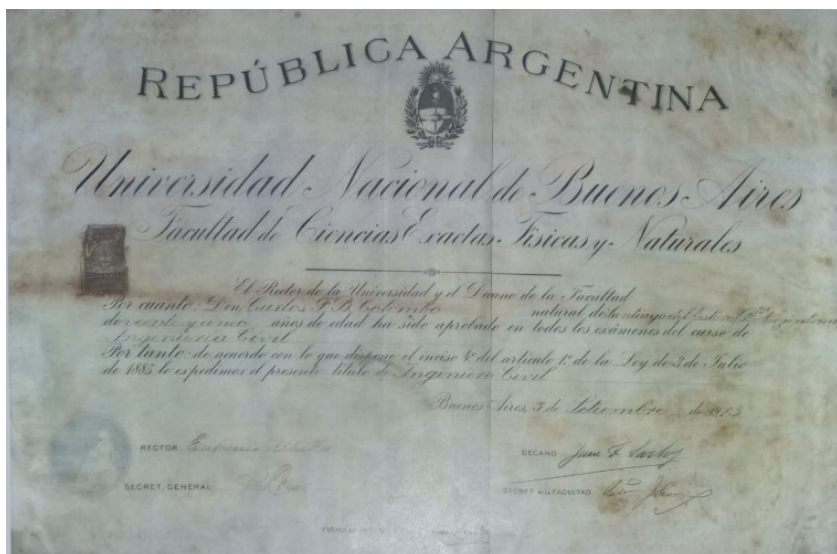 REPÚBLICA ARGENTINA
Universidad Nacional de Buenos Aires
Facultad de Ciencias Exactas Físicas y Naturales
El Rector de la Universidad y el Decano de la Facultad
Por cuanto: Don Carlos F. B. Colombo natural de Santiago del Estero
de veinte y cinco años de edad ha sido aprobado en todos los exámenes del curso de
Ingeniería Civil
Por tanto: de acuerdo con lo que dispone el inciso 4º del artículo 1º de la Ley de 3 de Julio
de 1885 le expedimos el presente título de Ingeniero Civil
Buenos Aires, 3 de Setiembre de 1913
RECTOR
DECANO Juan F. Sarhy
SECRET. GENERAL
SECRET. DE LA FACULTAD